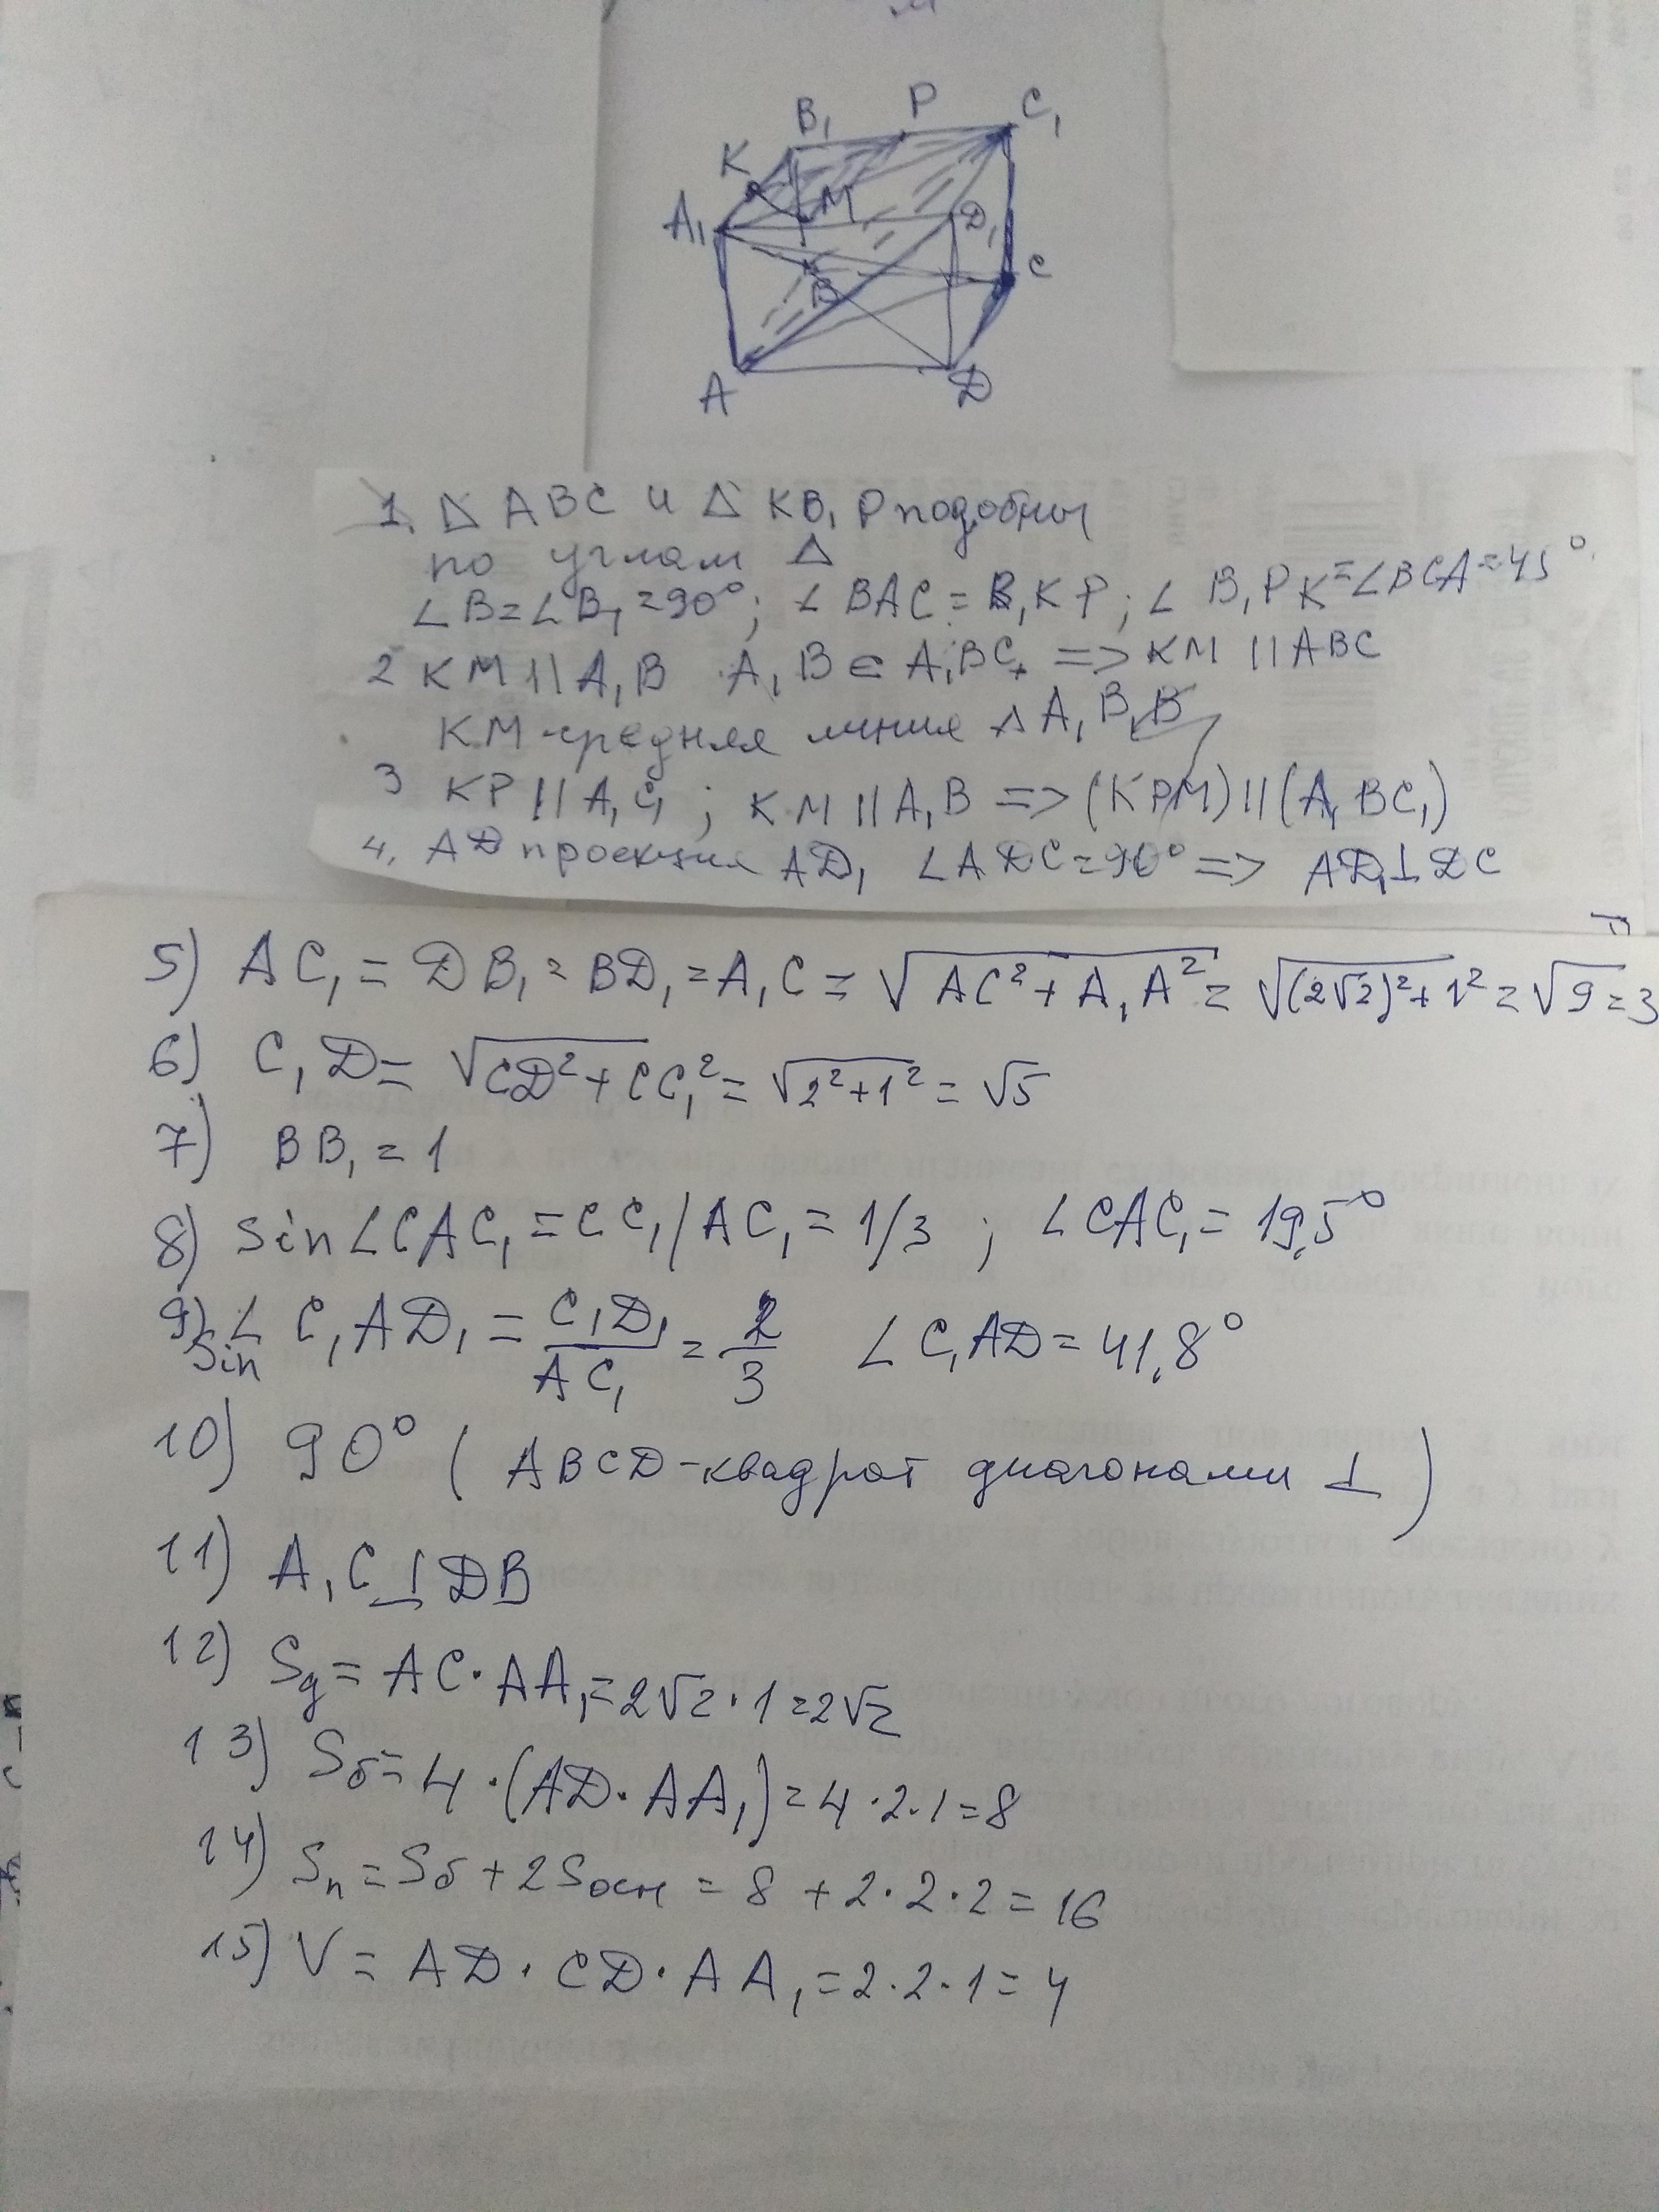 B₁ P C₁
K
A₁ M D₁
B C
A D
1. Δ ABC и Δ KB₁P подобны
по углам Δ
∠B=∠B₁=90°; ∠BAC=B₁KP; ∠B₁PK=∠BCA=45°
2 KM || A₁B A₁B ∈ A₁BC₁ => KM || ABC
KM-средняя линия Δ A₁B₁B
3 KP || A₁C₁; KM || A₁B => (KPM) || (A₁BC₁)
4. AD проекция AD₁ ∠ADC=90° => AD₁⊥DC
5) AC₁ = DB₁ = BD₁ = A₁C = √(AC²+A₁A²) = √((2√2)²+1²) = √9 = 3
6) C₁D = √(CD²+CC₁²) = √(2²+1²) = √5
7) BB₁ = 1
8) sin∠CAC₁ = CC₁/AC₁ = 1/3 ; ∠CAC₁ = 19,5°
9) sin ∠ C₁AD₁ = C₁D₁/AC₁ = 2/3 ∠C₁AD = 41,8°
10) 90° (ABCD-квадрат диагонами ⊥)
11) A₁C ⊥ DB
12) Sд = AC·AA₁ = 2√2·1 = 2√2
13) Sб = 4·(AD·AA₁) = 4·2·1 = 8
14) Sп = Sб + 2Sосн = 8 + 2·2·2 = 16
15) V = AD·CD·AA₁ = 2·2·1 = 4